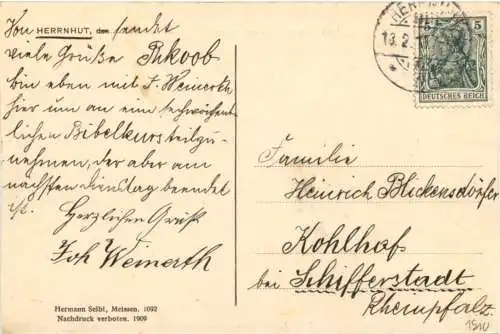 Von HERRNHUT, den sendet
viele Grüße
bin eben mit J. Weinerth
hier um an einem
lichen Bibelkurs teilzu-
nehmen, der aber am
nächsten Dienstag beendet
ist. Herzlichen Gruß
Joh Weinerth
Hermann Seibt, Meissen. 1092
Nachdruck verboten. 1909
13.2.
5 5
DEUTSCHES REICH
Familie
Heinrich Blickensdörfer
Kohlhof
bei Schifferstadt
Rheinpfalz.
1910